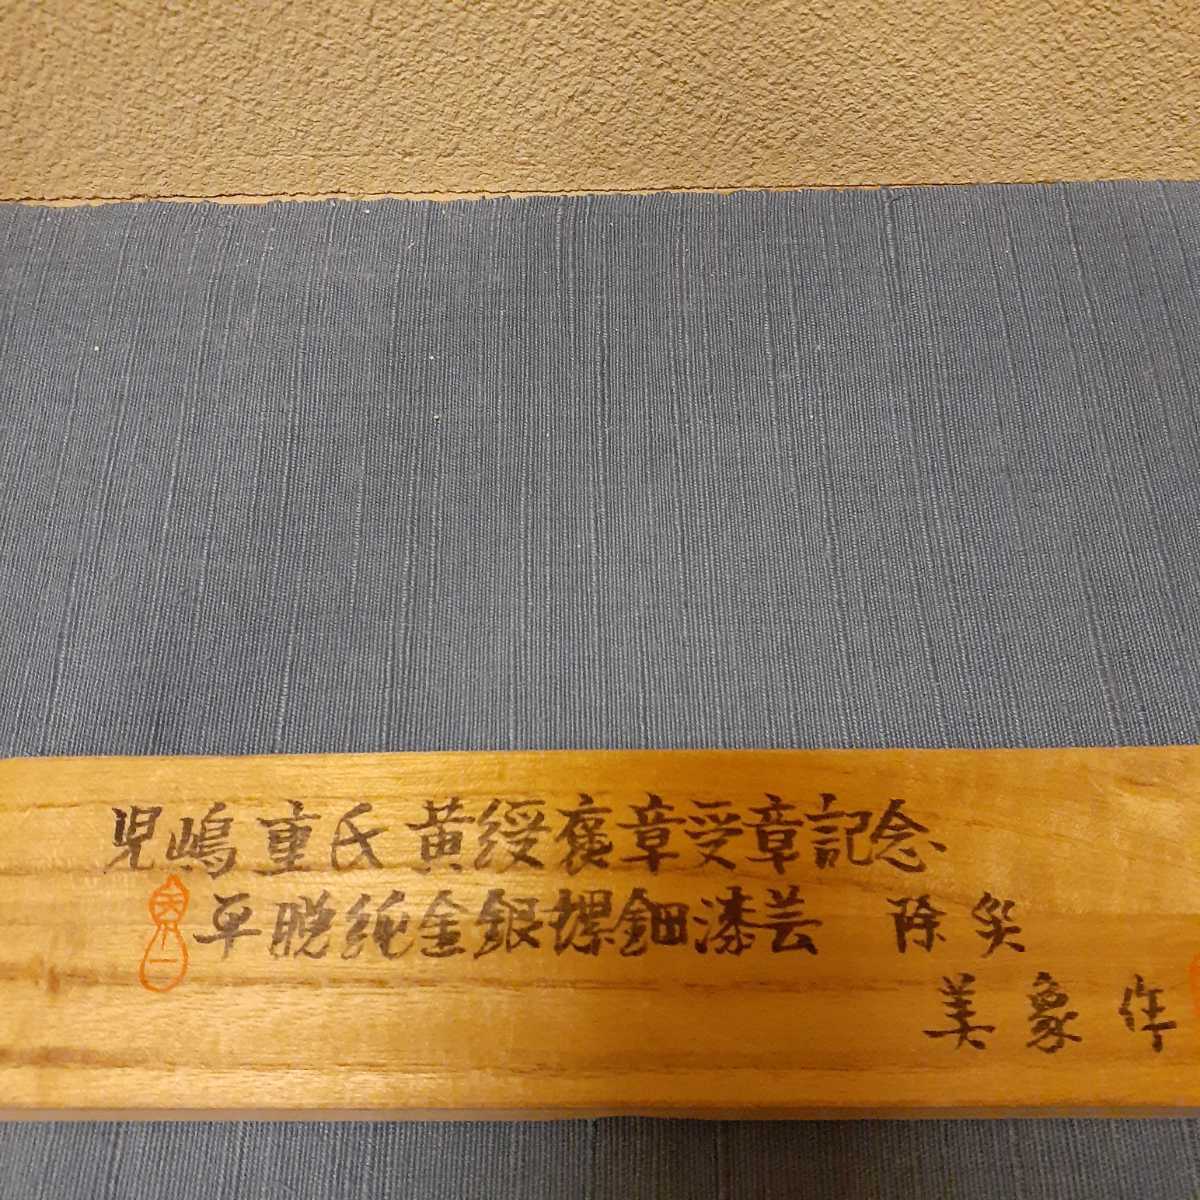 児嶋重氏黄綬褒章受章記念
平脱純金銀螺鈿漆芸 除災
美象作